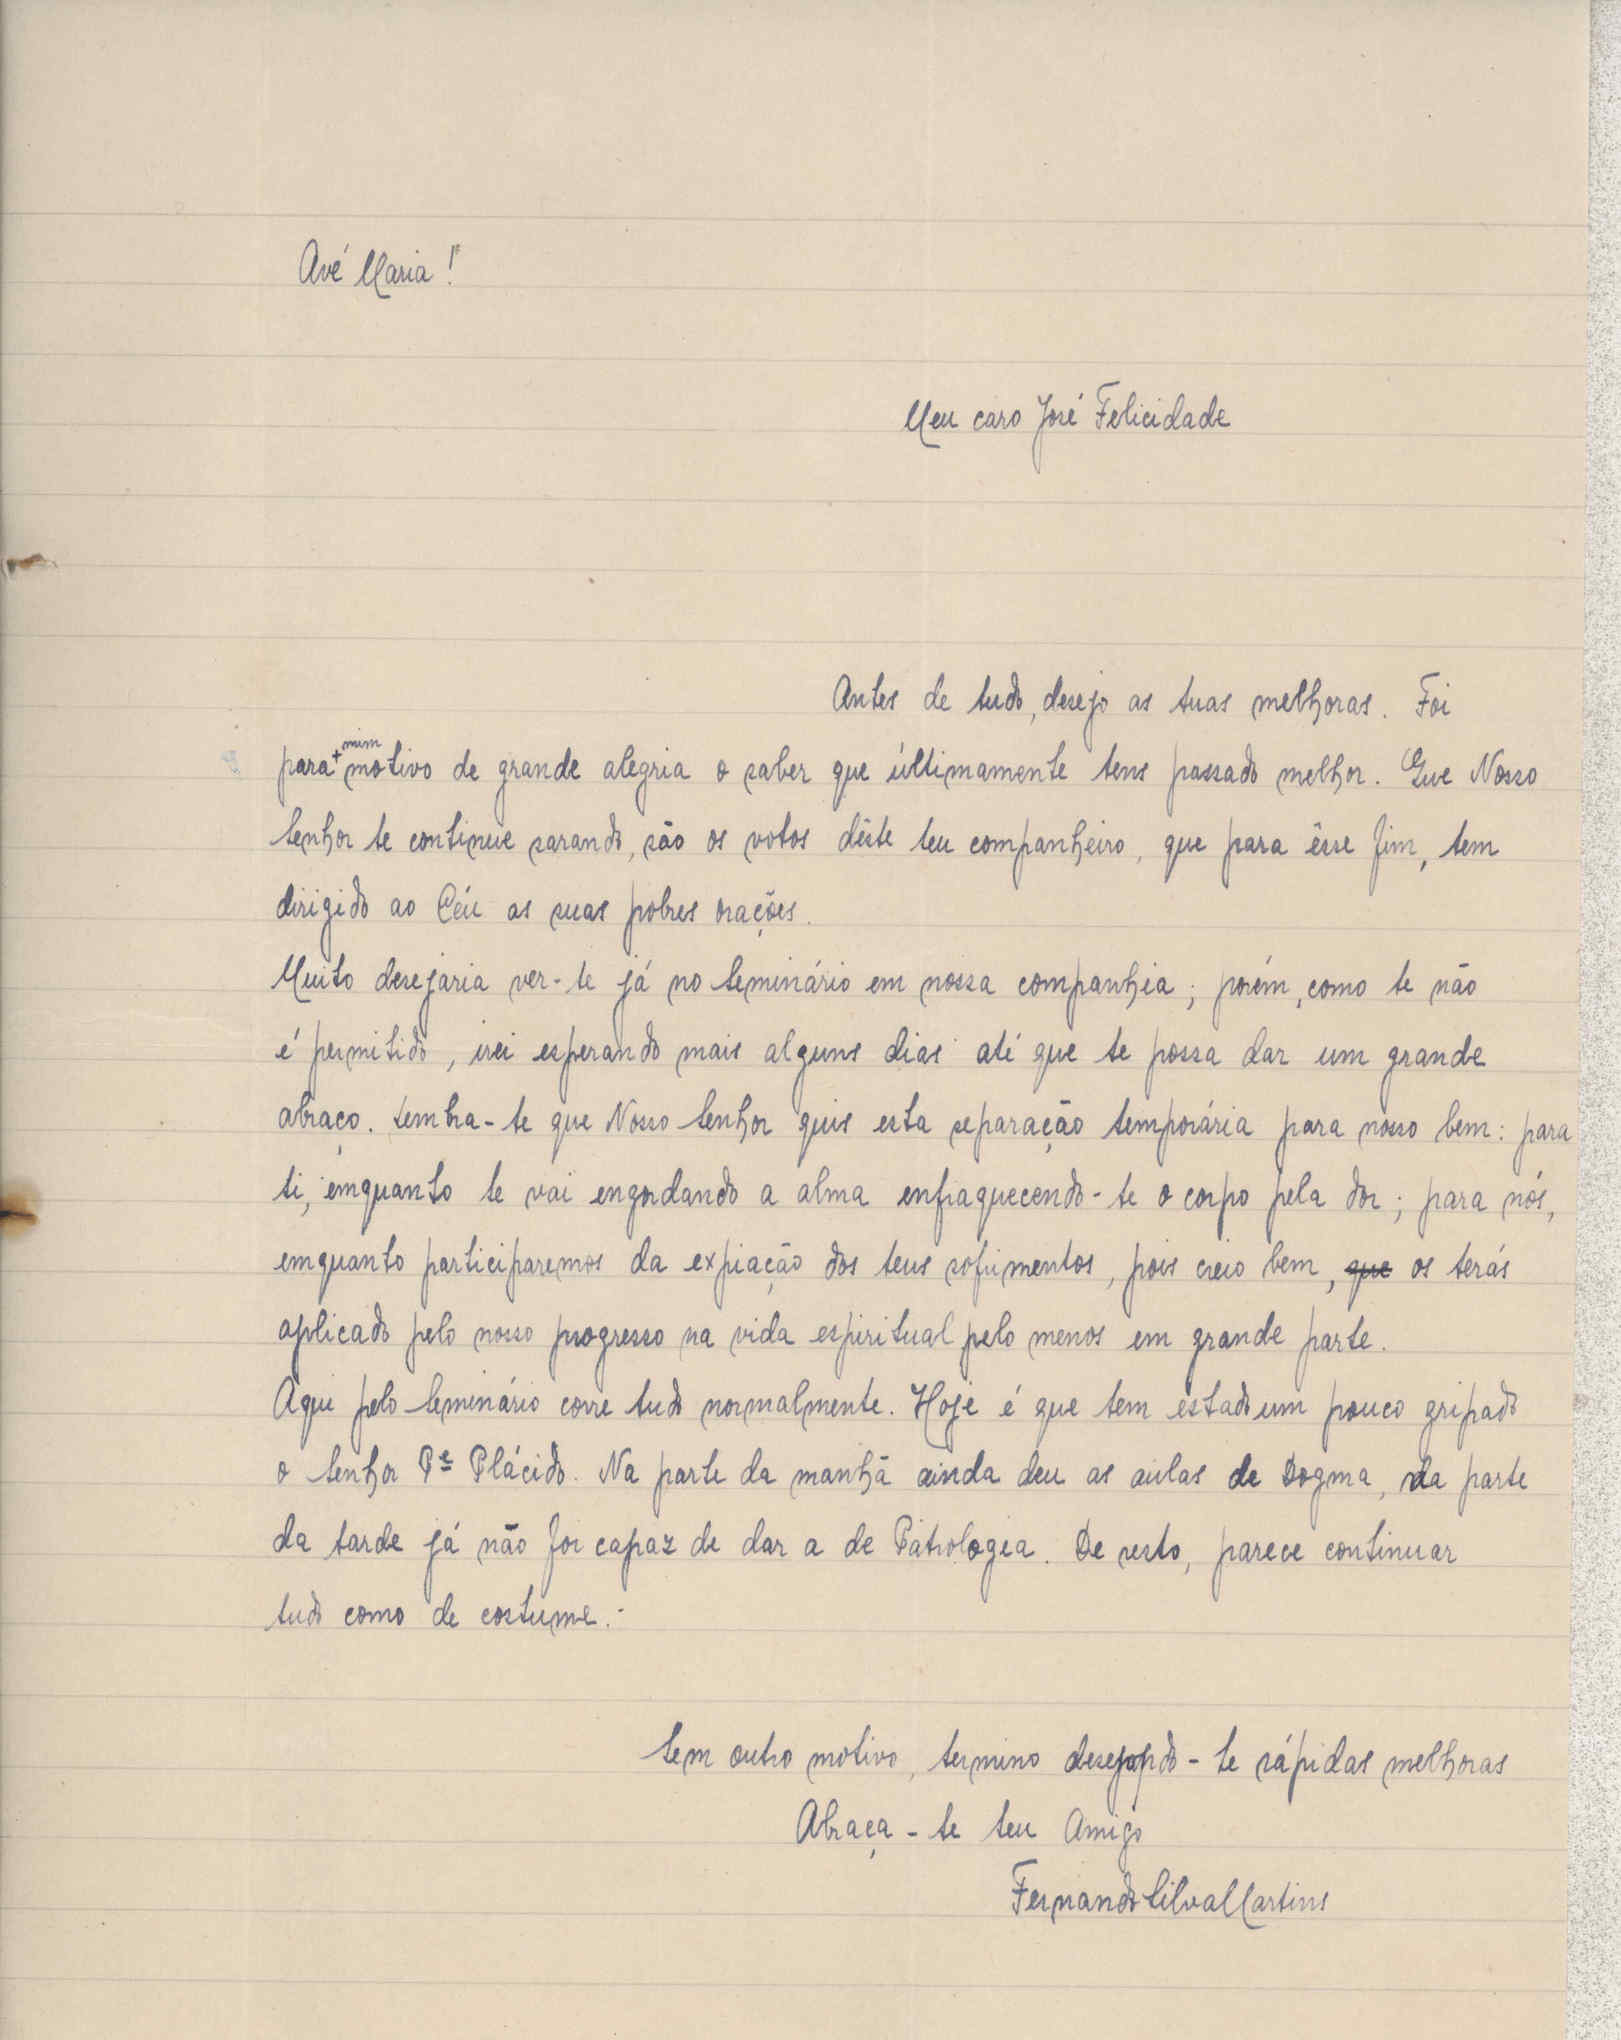 Avé Maria!
Meu caro José Felicidade
Antes de tudo, desejo as tuas melhoras. Foi
para mim motivo de grande alegria o saber que últimamente tens passado melhor. Que Nosso
Senhor te continue sarando, são os votos dêste teu companheiro, que para êsse fim, tem
dirigido ao Céu as suas pobres orações.
Muito desejaria ver-te já no Seminário em nossa companhia; porém, como te não
é permitido, irei esperando mais alguns dias até que te possa dar um grande
abraço. Lembra-te que Nosso Senhor quis esta separação temporária para nosso bem: para
ti, emquanto te vai engordando a alma enfraquecendo-te o corpo pela dor; para nós,
emquanto participaremos da expiação dos teus sofrimentos, pois creio bem, que os terás
aplicado pelo nosso progresso na vida espiritual pelo menos em grande parte.
Aqui pelo Seminário corre tudo normalmente. Hoje é que tem estado um pouco gripado
o Senhor Pe Plácido. Na parte da manhã ainda deu as aulas de Dogma, da parte
da tarde já não foi capaz de dar a de Patrologia. De resto, parece continuar
tudo como de costume.-
Sem outro motivo, termino desejando-te rápidas melhoras
Abraça-te teu Amigo
Fernando Silva Martins